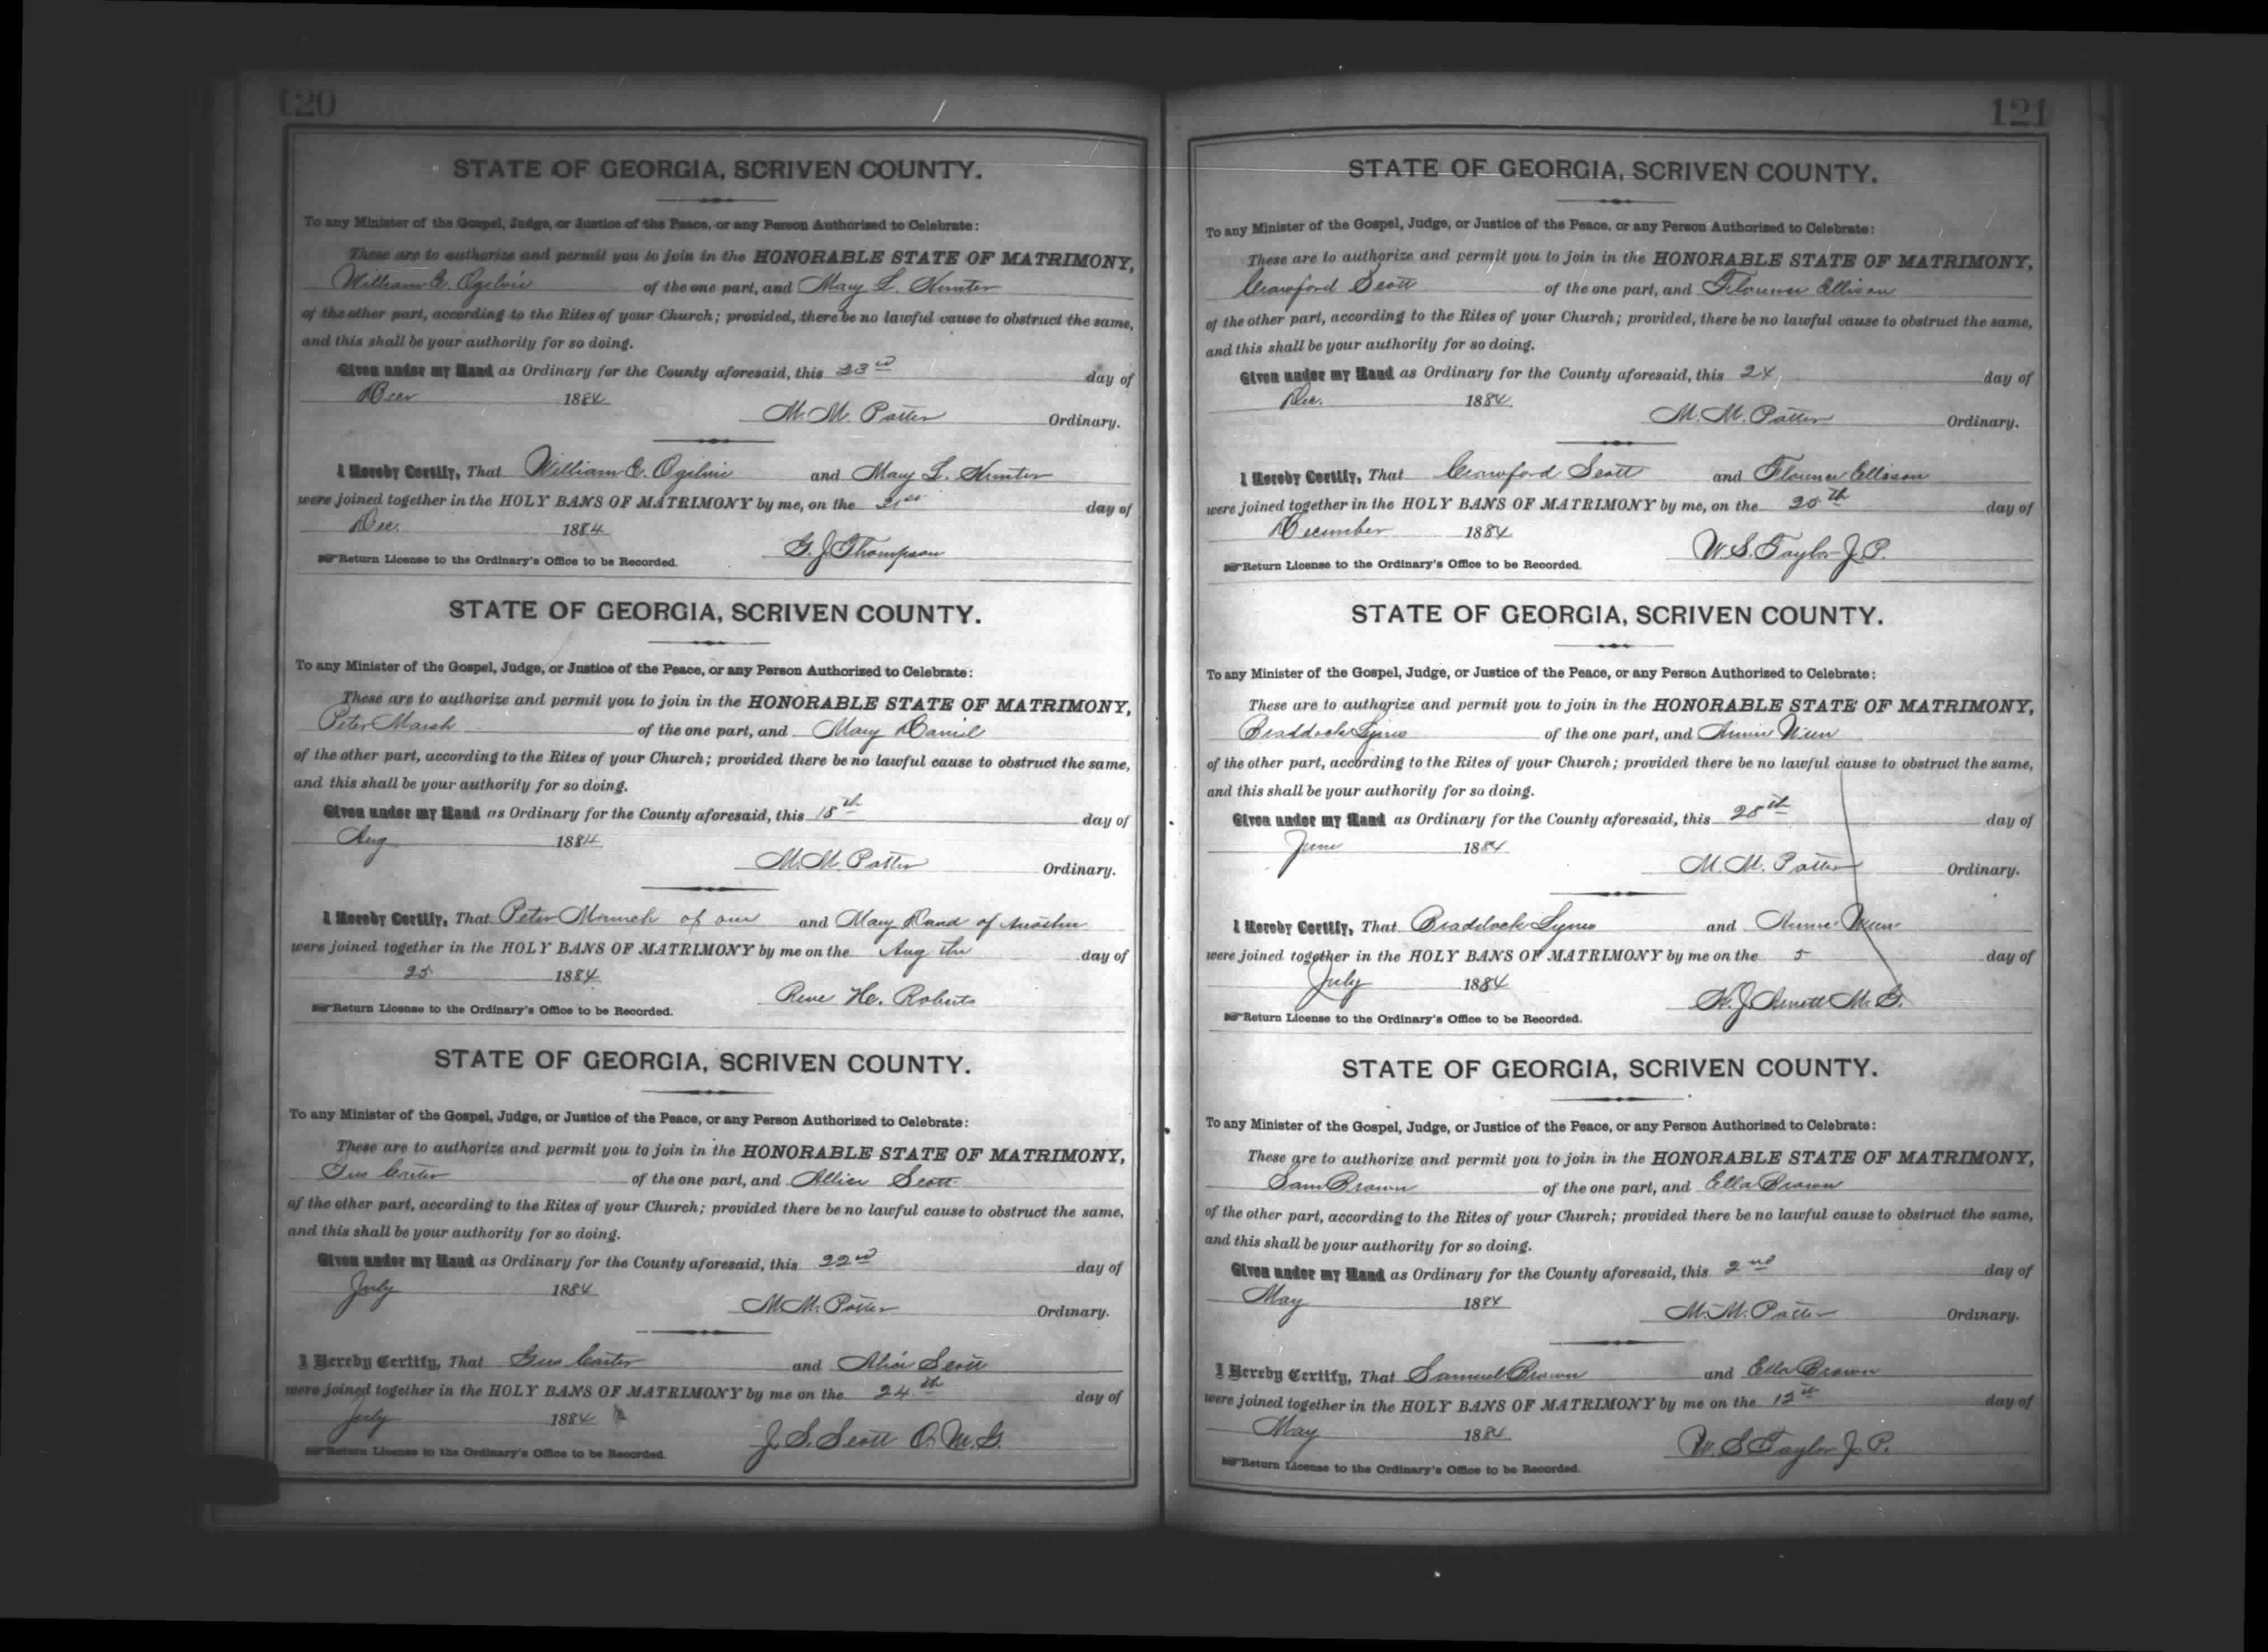 120
STATE OF GEORGIA, SCRIVEN COUNTY.
To any Minister of the Gospel, Judge, or Justice of the Peace, or any Person Authorized to Celebrate:
These are to authorize and permit you to join in the HONORABLE STATE OF MATRIMONY,
William E. Ogilvie of the one part, and Mary L. Hunter
of the other part, according to the Rites of your Church; provided, there be no lawful cause to obstruct the same,
and this shall be your authority for so doing.
Given under my Hand as Ordinary for the County aforesaid, this 23rd day of
Decr 1884
M. M. Potter Ordinary.
I Hereby Certify, That William E. Ogilvie and Mary L. Hunter
were joined together in the HOLY BANS OF MATRIMONY by me, on the day of
Dec. 1884
G. J. Thompson
Return License to the Ordinary's Office to be Recorded.
STATE OF GEORGIA, SCRIVEN COUNTY.
To any Minister of the Gospel, Judge, or Justice of the Peace, or any Person Authorized to Celebrate:
These are to authorize and permit you to join in the HONORABLE STATE OF MATRIMONY,
Peter Marsh of the one part, and Mary Daniel
of the other part, according to the Rites of your Church; provided there be no lawful cause to obstruct the same,
and this shall be your authority for so doing.
Given under my Hand as Ordinary for the County aforesaid, this 18th day of
Aug 1884
M. M. Potter Ordinary.
I Hereby Certify, That Peter of one and Mary Dand of Another
were joined together in the HOLY BANS OF MATRIMONY by me on the Aug the day of
25 1884
Reve H. Roberts
Return License to the Ordinary's Office to be Recorded.
STATE OF GEORGIA, SCRIVEN COUNTY.
To any Minister of the Gospel, Judge, or Justice of the Peace, or any Person Authorized to Celebrate:
These are to authorize and permit you to join in the HONORABLE STATE OF MATRIMONY,
Gus Carter of the one part, and Allice Scott
of the other part, according to the Rites of your Church; provided there be no lawful cause to obstruct the same,
and this shall be your authority for so doing.
Given under my Hand as Ordinary for the County aforesaid, this 22nd day of
July 1884
M. M. Potter Ordinary.
I Hereby Certify, That Gus Carter and Alice Scott
were joined together in the HOLY BANS OF MATRIMONY by me on the 24th day of
July 1884
J. S. Scott O. M. G.
Return License to the Ordinary's Office to be Recorded.
121
STATE OF GEORGIA, SCRIVEN COUNTY.
To any Minister of the Gospel, Judge, or Justice of the Peace, or any Person Authorized to Celebrate:
These are to authorize and permit you to join in the HONORABLE STATE OF MATRIMONY,
Crawford Scott of the one part, and Florence Ellison
of the other part, according to the Rites of your Church; provided, there be no lawful cause to obstruct the same,
and this shall be your authority for so doing.
Given under my Hand as Ordinary for the County aforesaid, this 24, day of
Dec. 1884
M. M. Potter Ordinary.
I Hereby Certify, That Crawford Scott and Florence Ellison
were joined together in the HOLY BANS OF MATRIMONY by me, on the 25th day of
December 1884
W. S. Taylor J. P.
Return License to the Ordinary's Office to be Recorded.
STATE OF GEORGIA, SCRIVEN COUNTY.
To any Minister of the Gospel, Judge, or Justice of the Peace, or any Person Authorized to Celebrate:
These are to authorize and permit you to join in the HONORABLE STATE OF MATRIMONY,
Braddock Lyons of the one part, and Annie
of the other part, according to the Rites of your Church; provided there be no lawful cause to obstruct the same,
and this shall be your authority for so doing.
Given under my Hand as Ordinary for the County aforesaid, this 28th day of
June 1884
M. M. Potter Ordinary.
I Hereby Certify, That Braddock Lyons and Annie
were joined together in the HOLY BANS OF MATRIMONY by me on the 5 day of
July 1884
H. J. Arnett M. G.
Return License to the Ordinary's Office to be Recorded.
STATE OF GEORGIA, SCRIVEN COUNTY.
To any Minister of the Gospel, Judge, or Justice of the Peace, or any Person Authorized to Celebrate:
These are to authorize and permit you to join in the HONORABLE STATE OF MATRIMONY,
Sam Brown of the one part, and Ella Brown
of the other part, according to the Rites of your Church; provided there be no lawful cause to obstruct the same,
and this shall be your authority for so doing.
Given under my Hand as Ordinary for the County aforesaid, this 2nd day of
May 1884
M. M. Potter Ordinary.
I Hereby Certify, That Samuel Brown and Ella Brown
were joined together in the HOLY BANS OF MATRIMONY by me on the 12th day of
May 1884
W. S. Taylor J. P.
Return License to the Ordinary's Office to be Recorded.